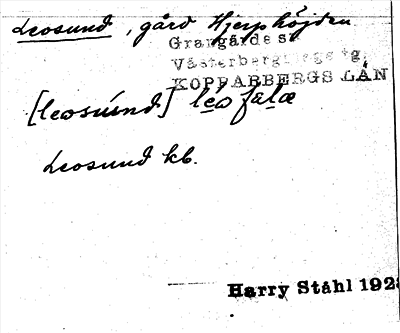 Leosund, gård Hjerphöjden
Grangärde s
Västerbergslags tg.
KOPPARBERGS LÄN
[leosúnd] léo fala
Leosund kb.
Harry Ståhl 1928